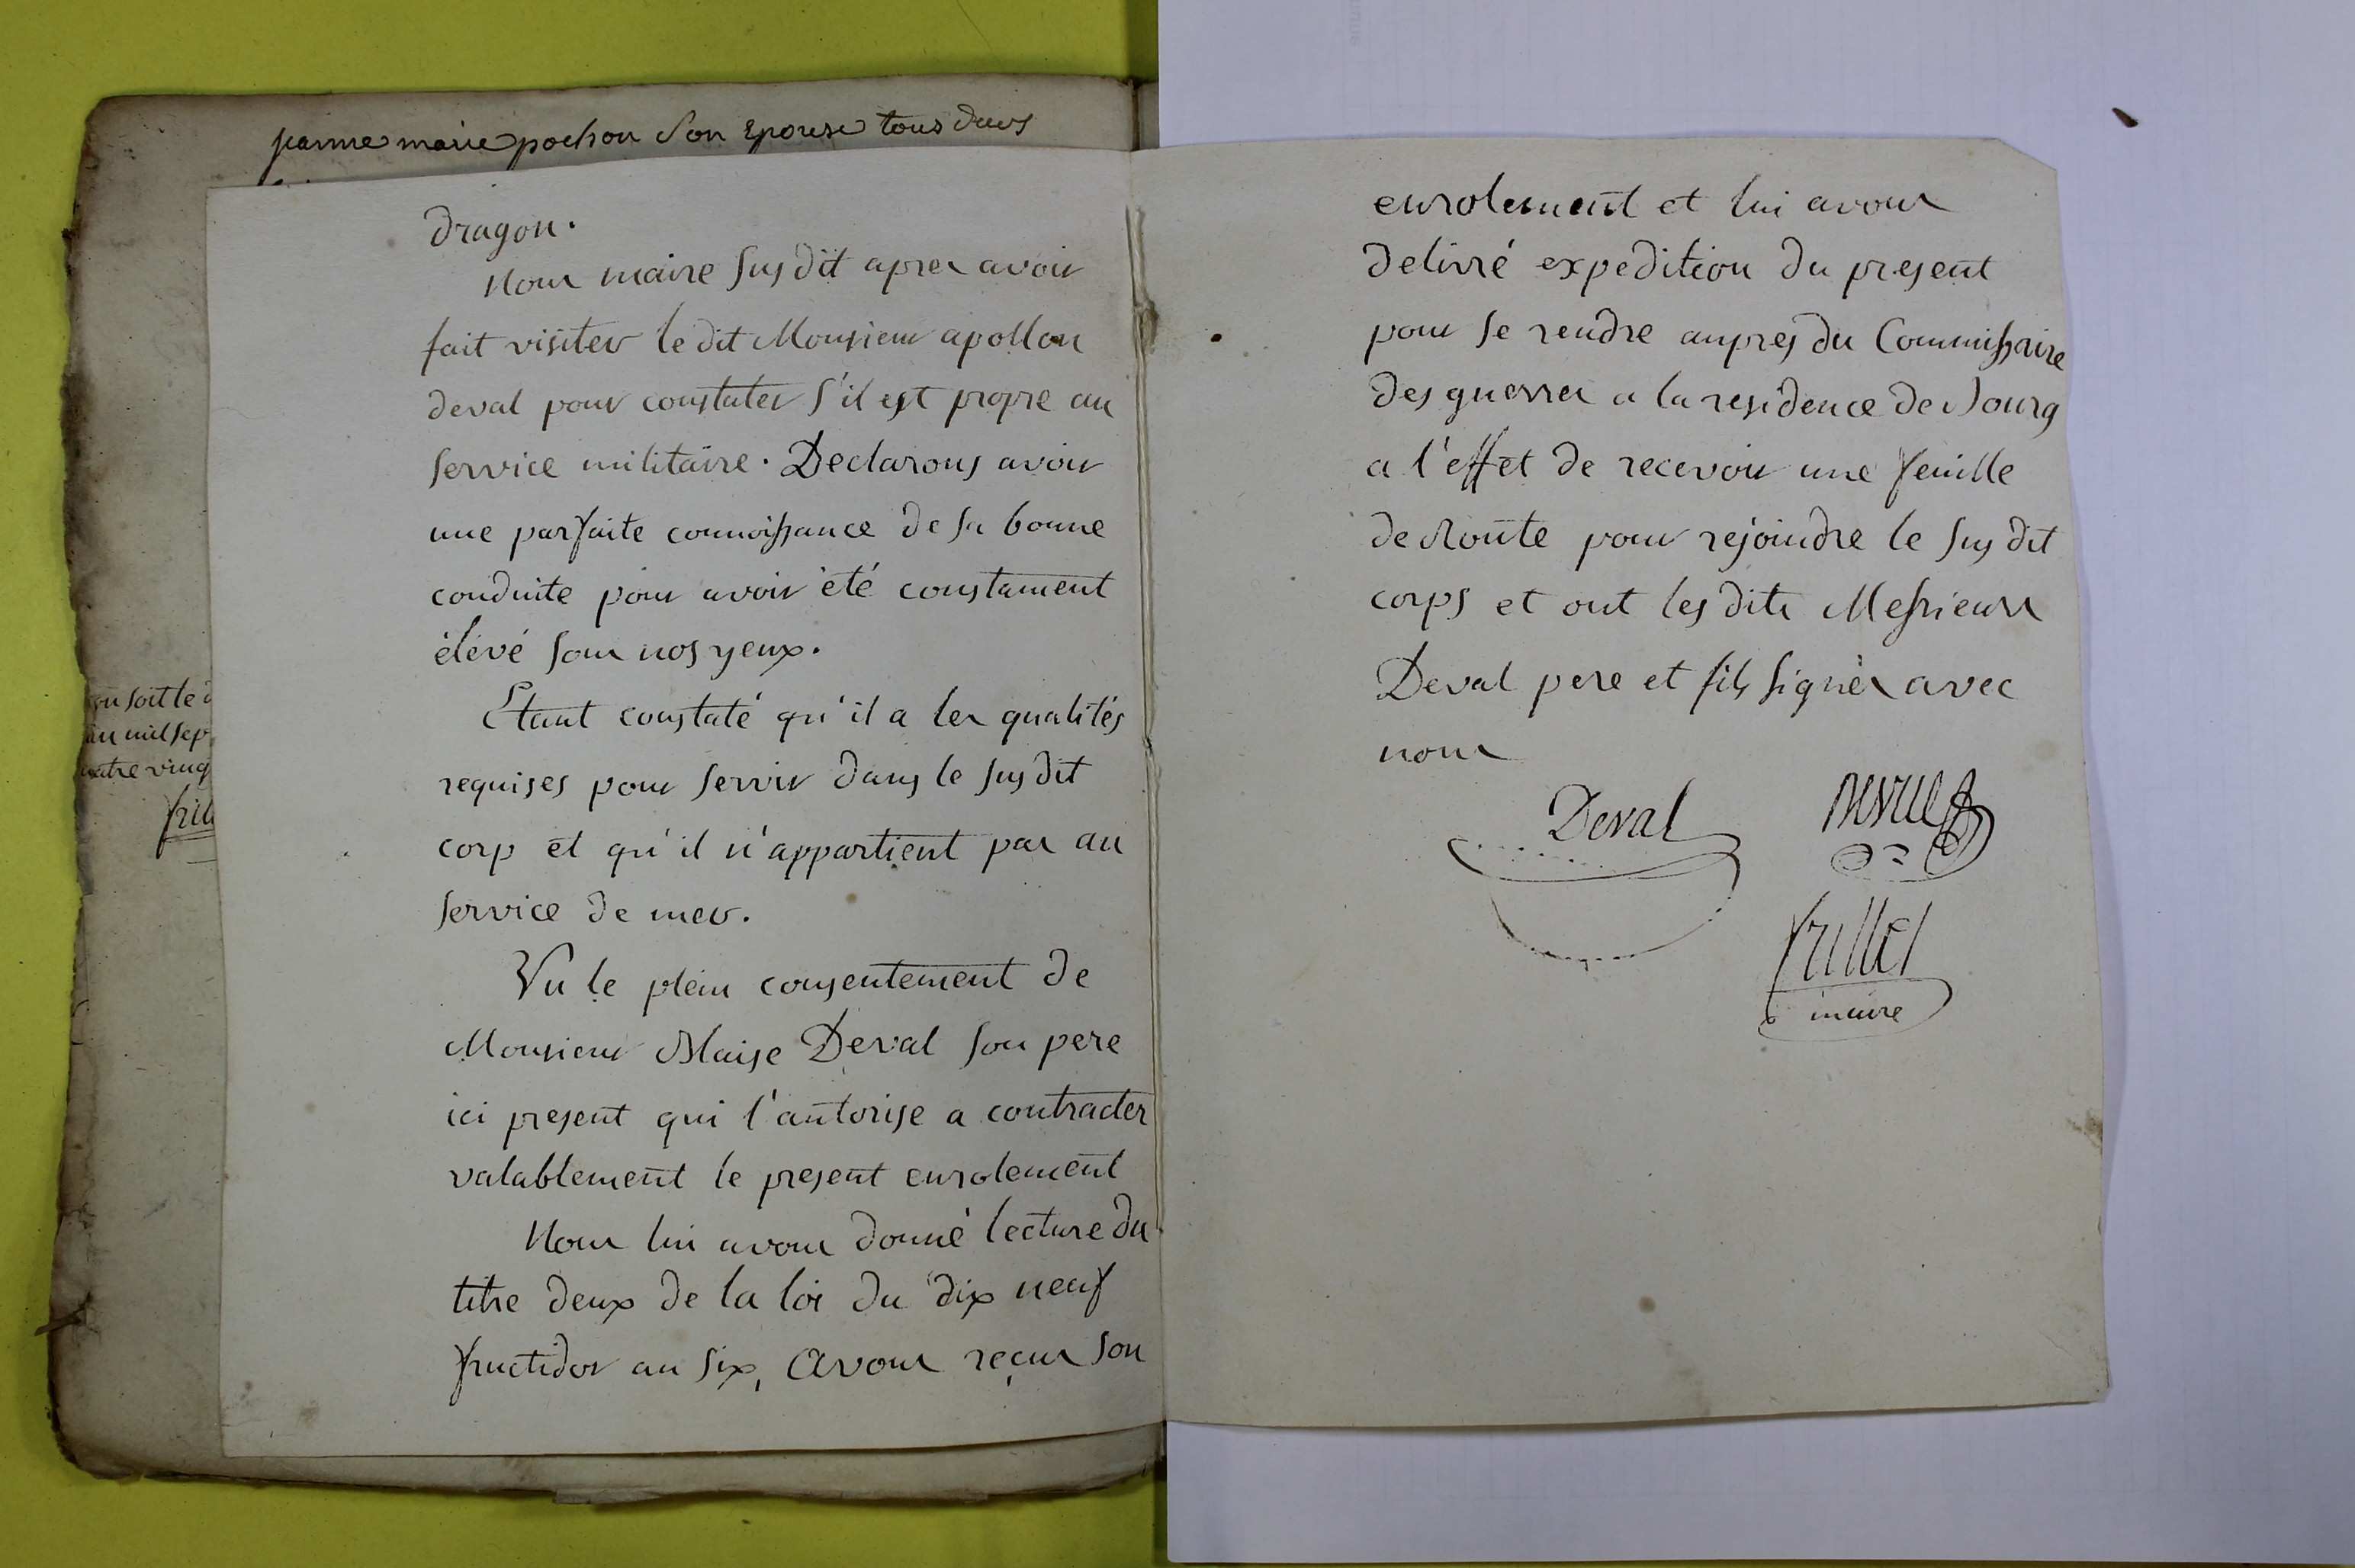 jeanne marie pochon son Epouse tous deux
dragon.
Nous maire susdit apres avoir
fait visiter le dit Monsieur apollon
deval pour constater s'il est propre au
service militaire. Declarons avoir
une parfaite connoissance de sa bonne
conduite pour avoir été constament
élevé sous nos yeux.
Etant constaté qu'il a les qualités
requises pour servir dans le sus dit
corp et qu'il n'appartient pas au
service de mer.
Vu le plein consentement de
Monsieur Blaise Deval son pere
ici present qui l'autorise a contracter
valablement le present enrolement
Nous lui avons donné lecture du
titre deux de la loi du dix neuf
fructidor an six, Avons reçus son
ou soit le d
an mil sep
uatre ving
fril
enrolement et lui avons
delivré expedition du present
pour se rendre aupres du Commissaire
des guerres a la residence de Bourg
a l'effet de recevoir une feuille
de Route pour rejoindre le sus dit
corps et ont les dits Messieurs
Deval pere et fils signés avec
nous
Deval
frillet
maire